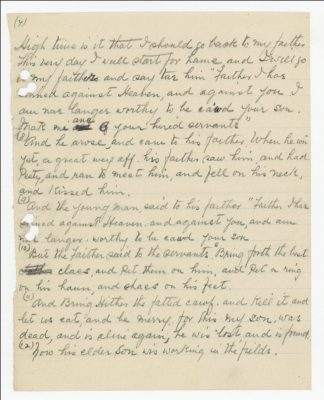 (4)
High time is it that I should go back to my faither
This very day I wull start for hame, and I will go
my faither and say tae him "Faither I has
sinned against Heaven, and against you I
am nae langer worthy to be ca'ed your son.
Mak me ane o your hired servants"
And he arose and cam to his faither. When he wis
yet, a great way off, his faither saw him, and had
Pity, and ran to meet him, and fell on his neck,
and kissed him.
And the young man, said to his faither "Faither I hae
sinned against Heaven, and against you, and am
nae langer worthy to be ca'ed your son
But the faither said to the servants, "Bring forth the best
claes, and Pet them on him, and Pet a ring
on his haun, and shaes on his feet.
And Bring hither the fatted cawf, and kill it and
let us eat, and be merry, for this my son, was
dead, and is alive again, he wis lost and is found
(2) Now his elder Son wis working in the fields.